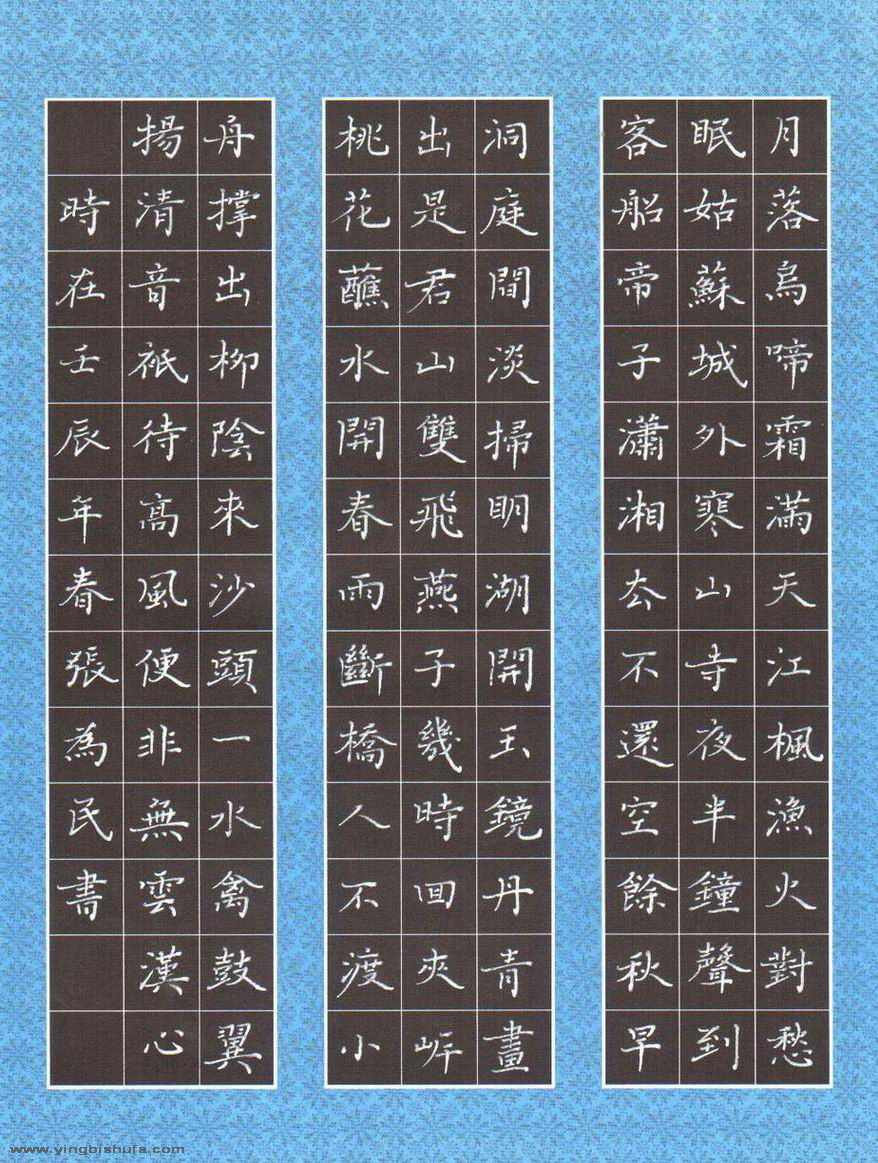 月落烏啼霜滿天江楓漁火對愁
眠姑蘇城外寒山寺夜半鐘聲到
客船帝子瀟湘去不還空餘秋早
洞庭間淡掃明湖開玉鏡丹青畫
出是君山雙飛燕子幾時回夾岸
桃花蘸水開春雨斷橋人不渡小
舟撐出柳陰來沙頭一水禽鼓翼
揚清音祇待高風便非無雲漢心
時在壬辰年春張為民書
www.yingbishufa.com